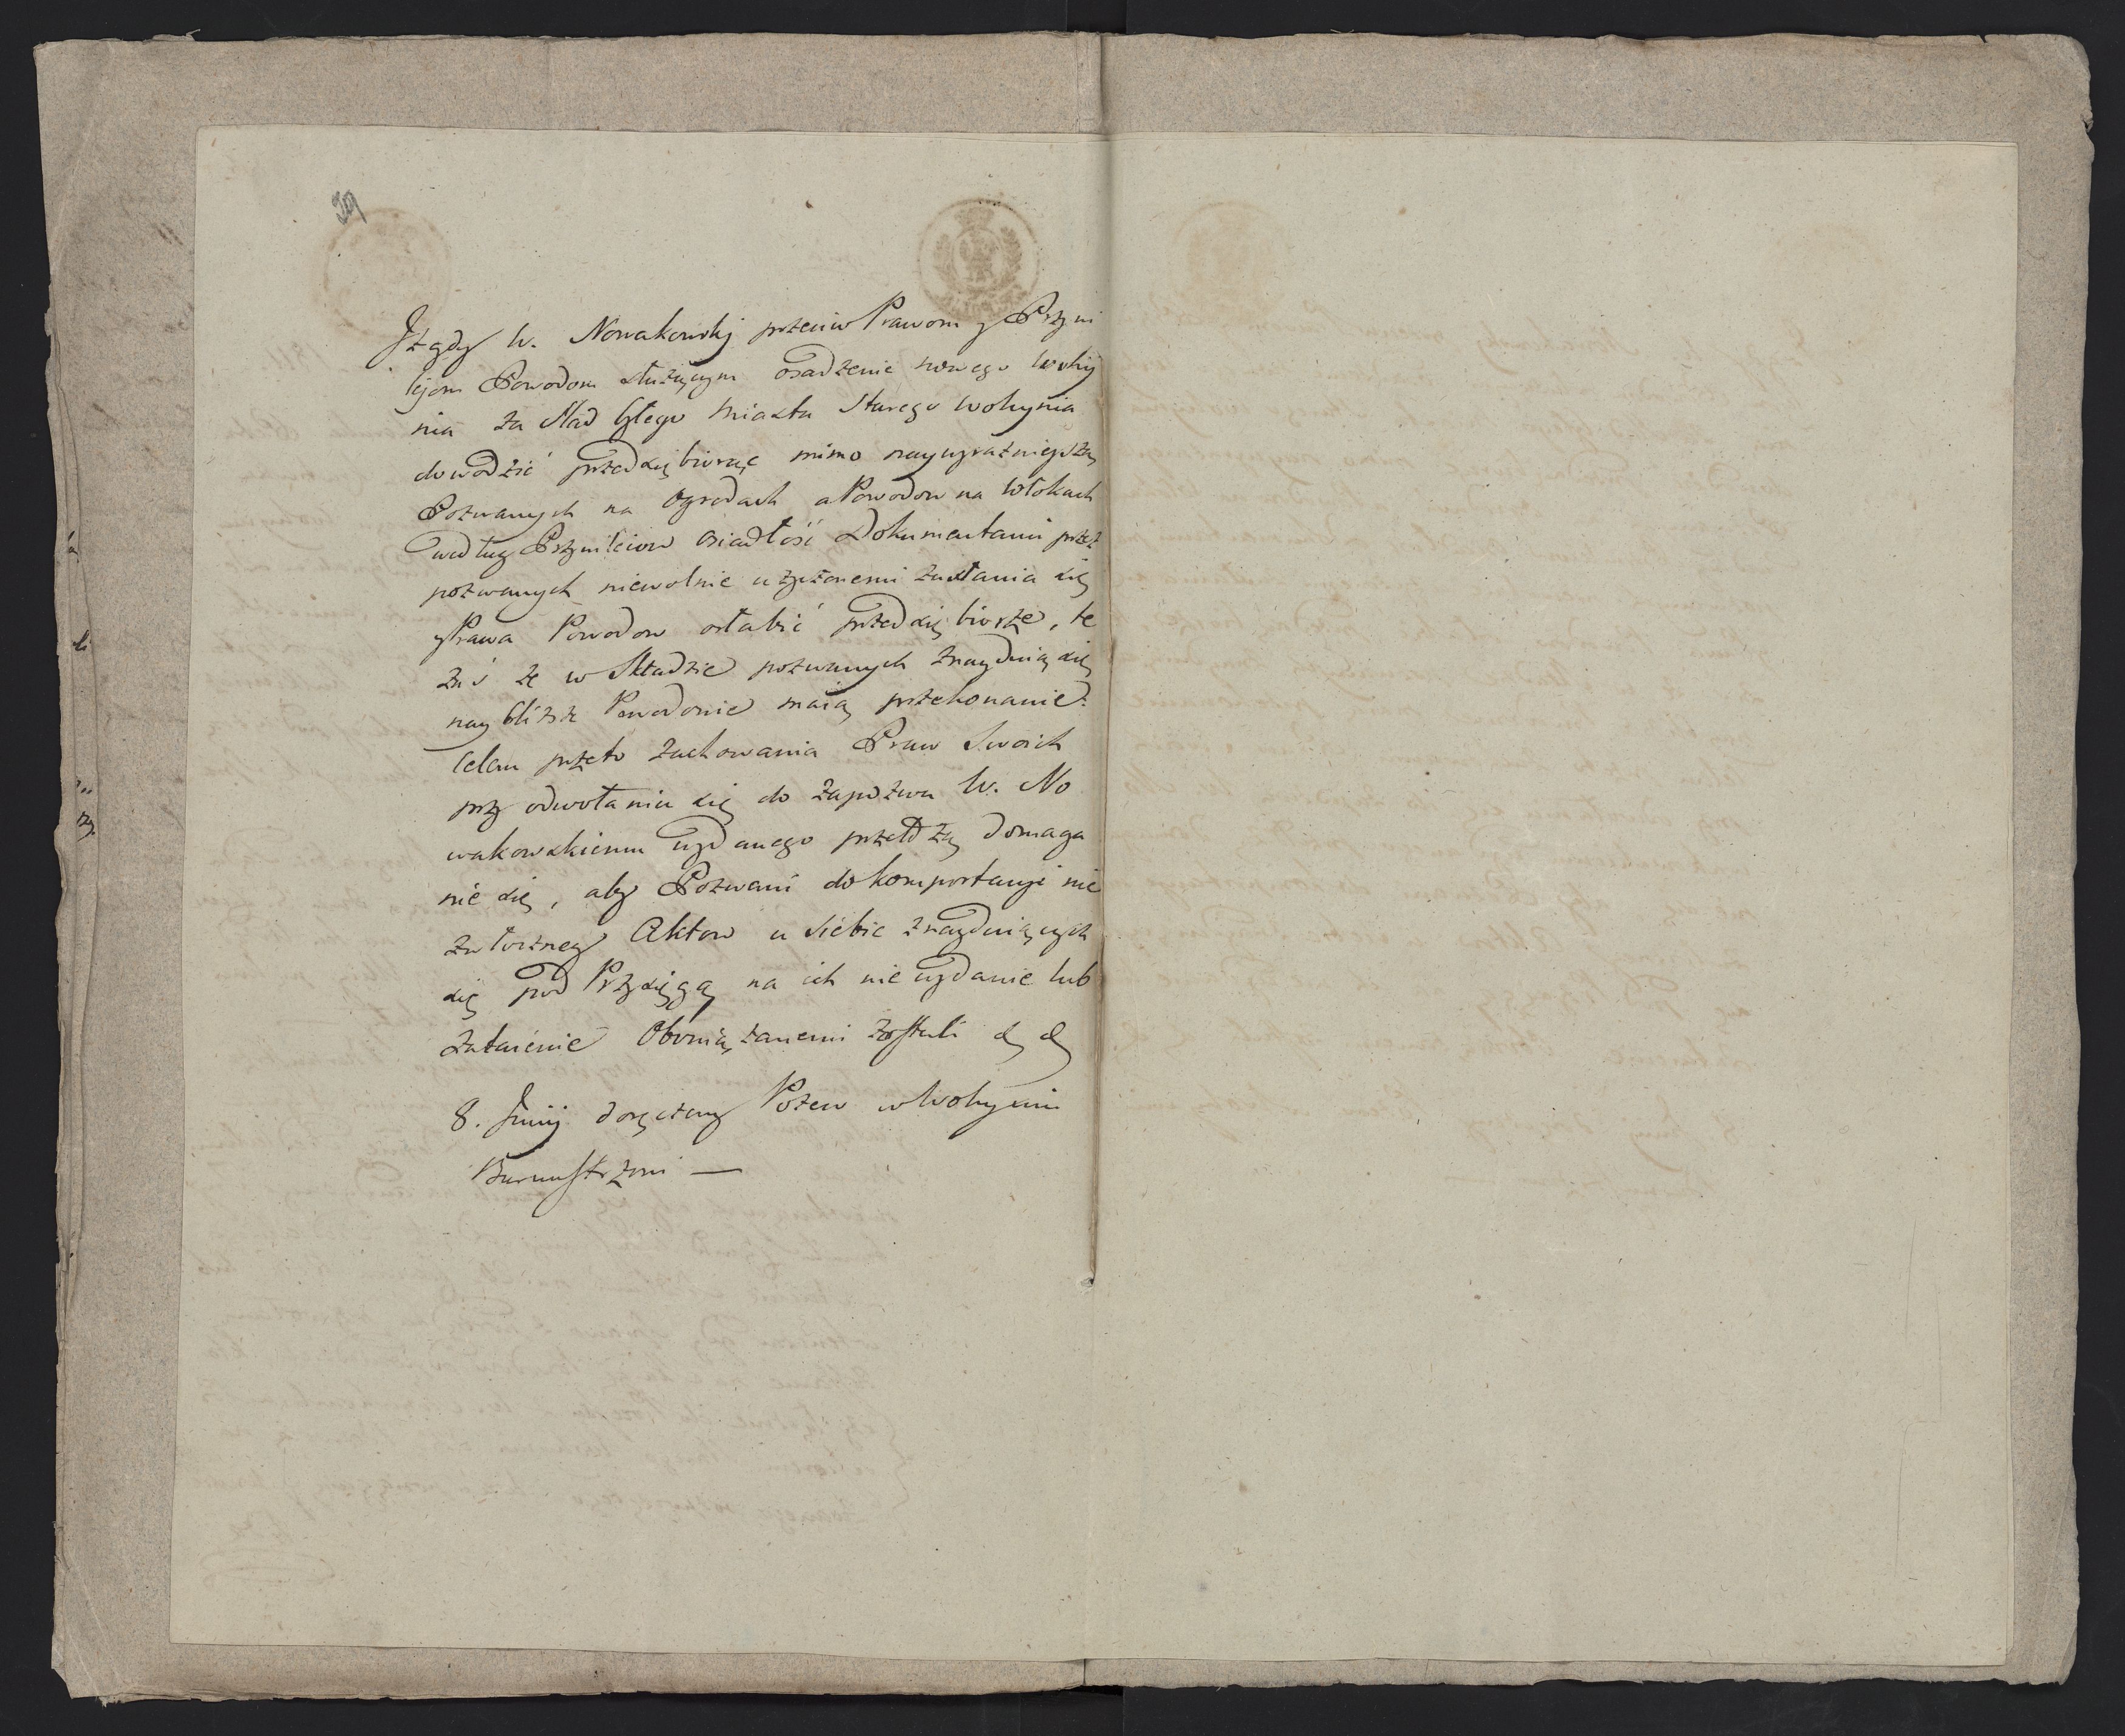 39
Iż gdy W. Nowakowskj przeciw Prawom y Przywi
lejom Powodom służącym osadzenie nowego Wohy
nia za ślad byłego Miasta Starego Wohynia
dowodzić przedsiębiorąc mimo naywyraźnieyszą
Pozwanych na Ogrodach a Powodow na Włokach
według Przywileiow osiadłość Dokumentami przez
pozwanych niewolnie użytonemi zasłania się
y Prawa Powodow osłabić przedsiębierze, te
zaś że w Składzie pozwanych znayduią się
naybliższe Powodowie maią przekonanie:
Celem przeto zachowania Praw Swoich
przy odwołaniu się do Zapozwu W. No
wakowskiemu wydanego przetdzą domaga
nie się, aby Pozwani do komportacyi nie
załoczney Aktow u siebie znayduiących
się pod Przysięgą na ich nie wydanie lub
zataienie Obowiązanemi zostali & &
8. Junij doręczony Pozew w Wohyniu
Burmistrzowi —